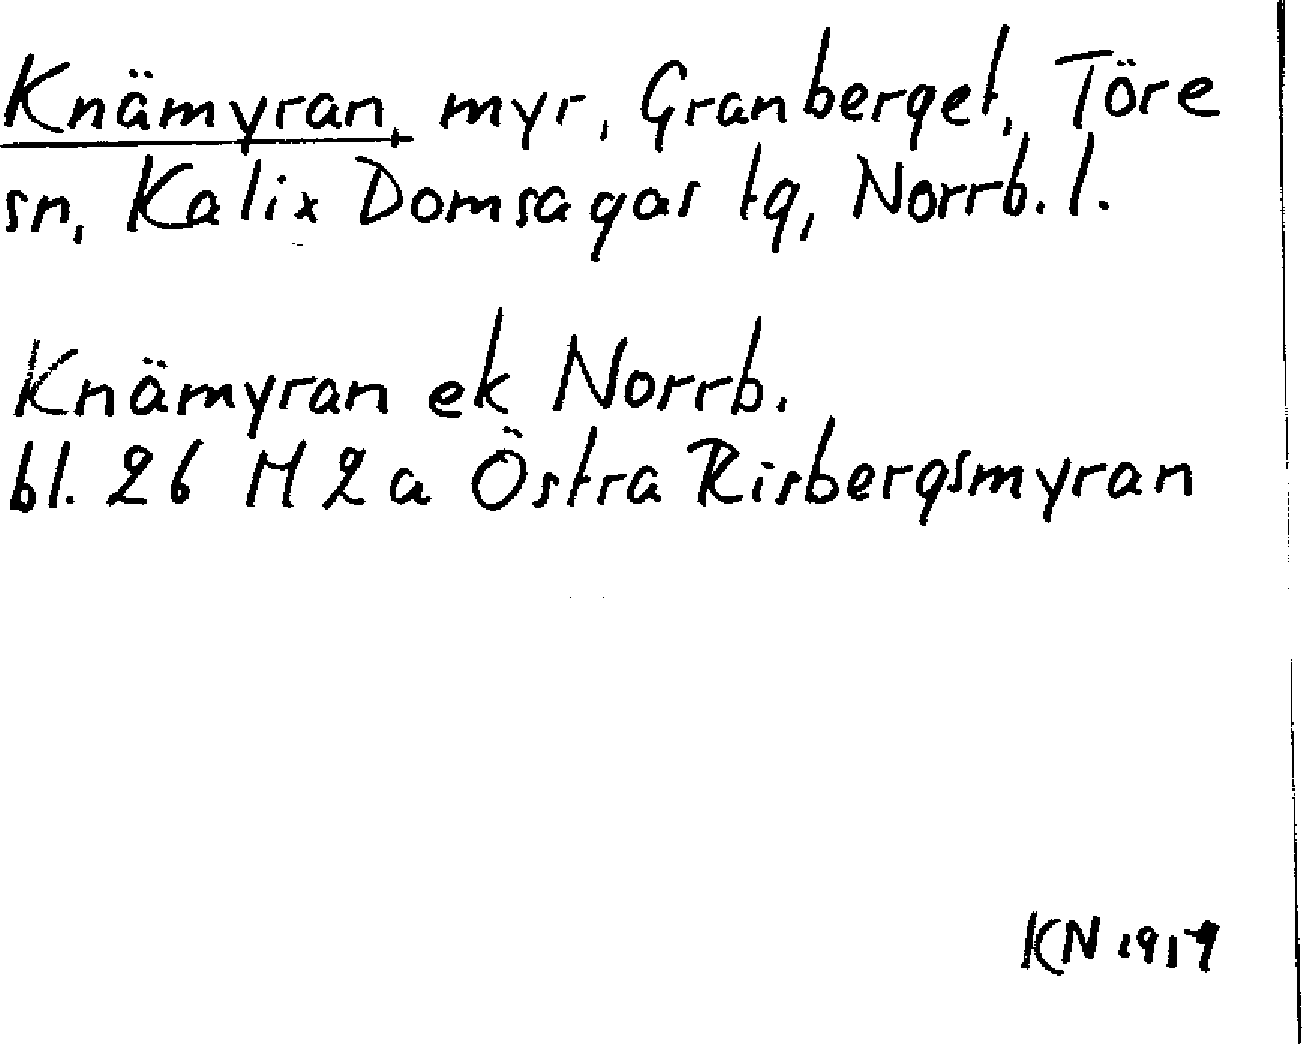 Knämyran, myr, Granberget, Töre
sn, Kalix Domsagas tg, Norrb. l.
Knämyran ek Norrb.
bl. 26 M 2 a Östra Risbergsmyran
KN